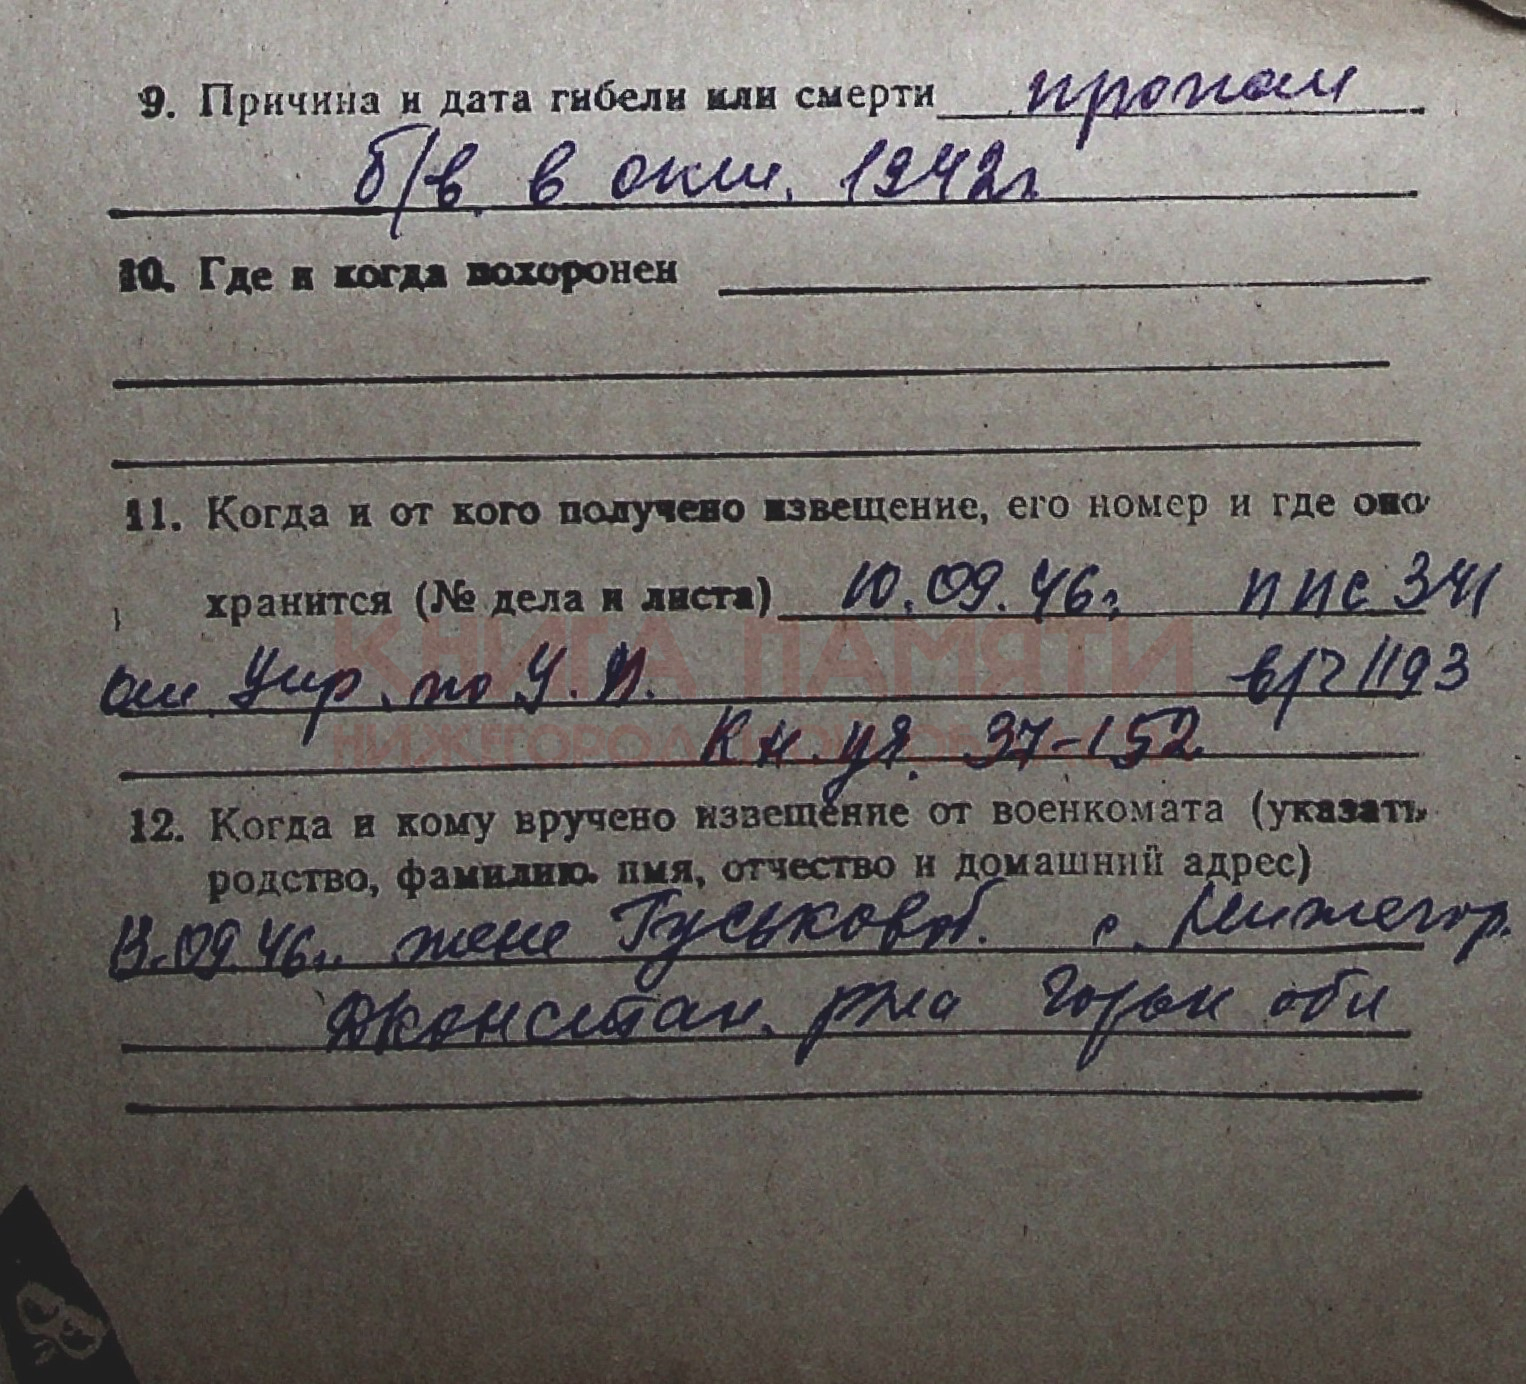 9. Причина и дата гибели или смерти пропал
б/в. в окт. 1942г.
10. Где и когда похоронен
11. Когда и от кого получено извещение, его номер и где оно
хранится (№ дела и листа) 10.09.46г. ппс 341
КНИГА ПАМЯТИ
от Упр. по У. П. в/ч 1193
НИЖЕГОРОД
Кн. уч. 37-152
12. Когда и кому вручено извещение от военкомата (указать
родство, фамилию. имя, отчество и домашний адрес)
09.46г. жене Гуськовой.
р-на Горьк обл